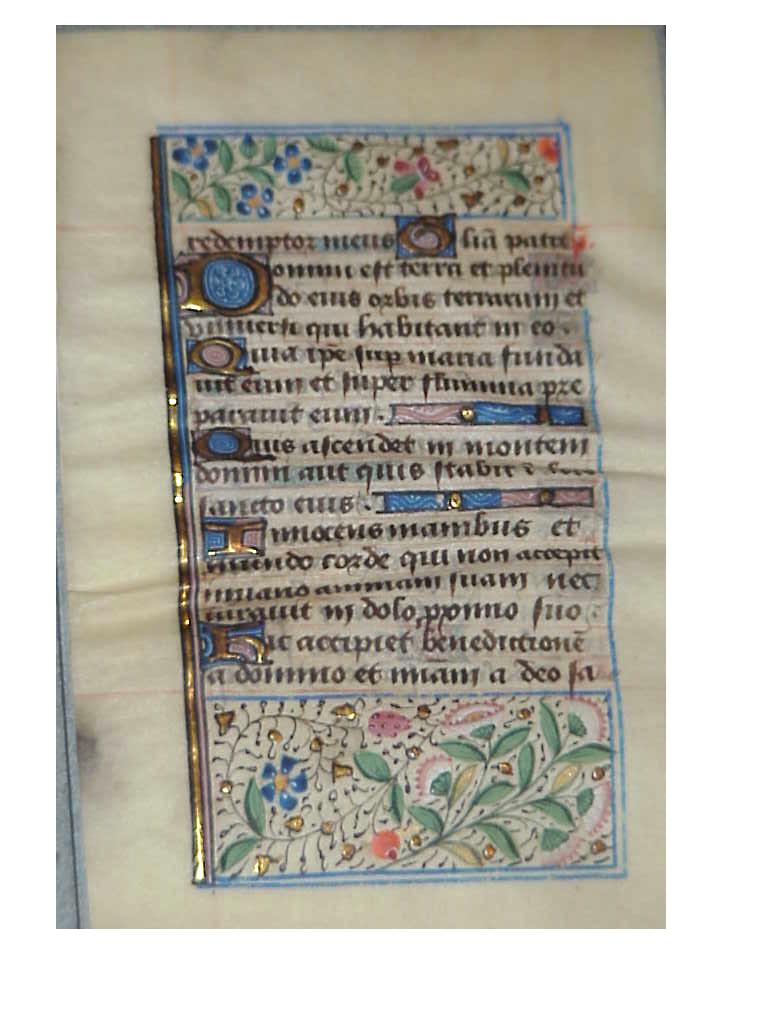 redemptor meus Glia patri. ps.
Domini est terra et plenitu
do eius orbis terrarum et
vniuersi qui habitant in eo .
Quia ipe sup maria funda
uit eum et super flumina pre
parauit eum .
Quis ascendet in montem
domini aut quis stabit i
sancto eius .
Innocens manibus et
mundo corde qui non accepit
in uano animam suam nec
iurauit in dolo pximo suo .
Hic accipiet benedictione
a domino et miam a deo sa